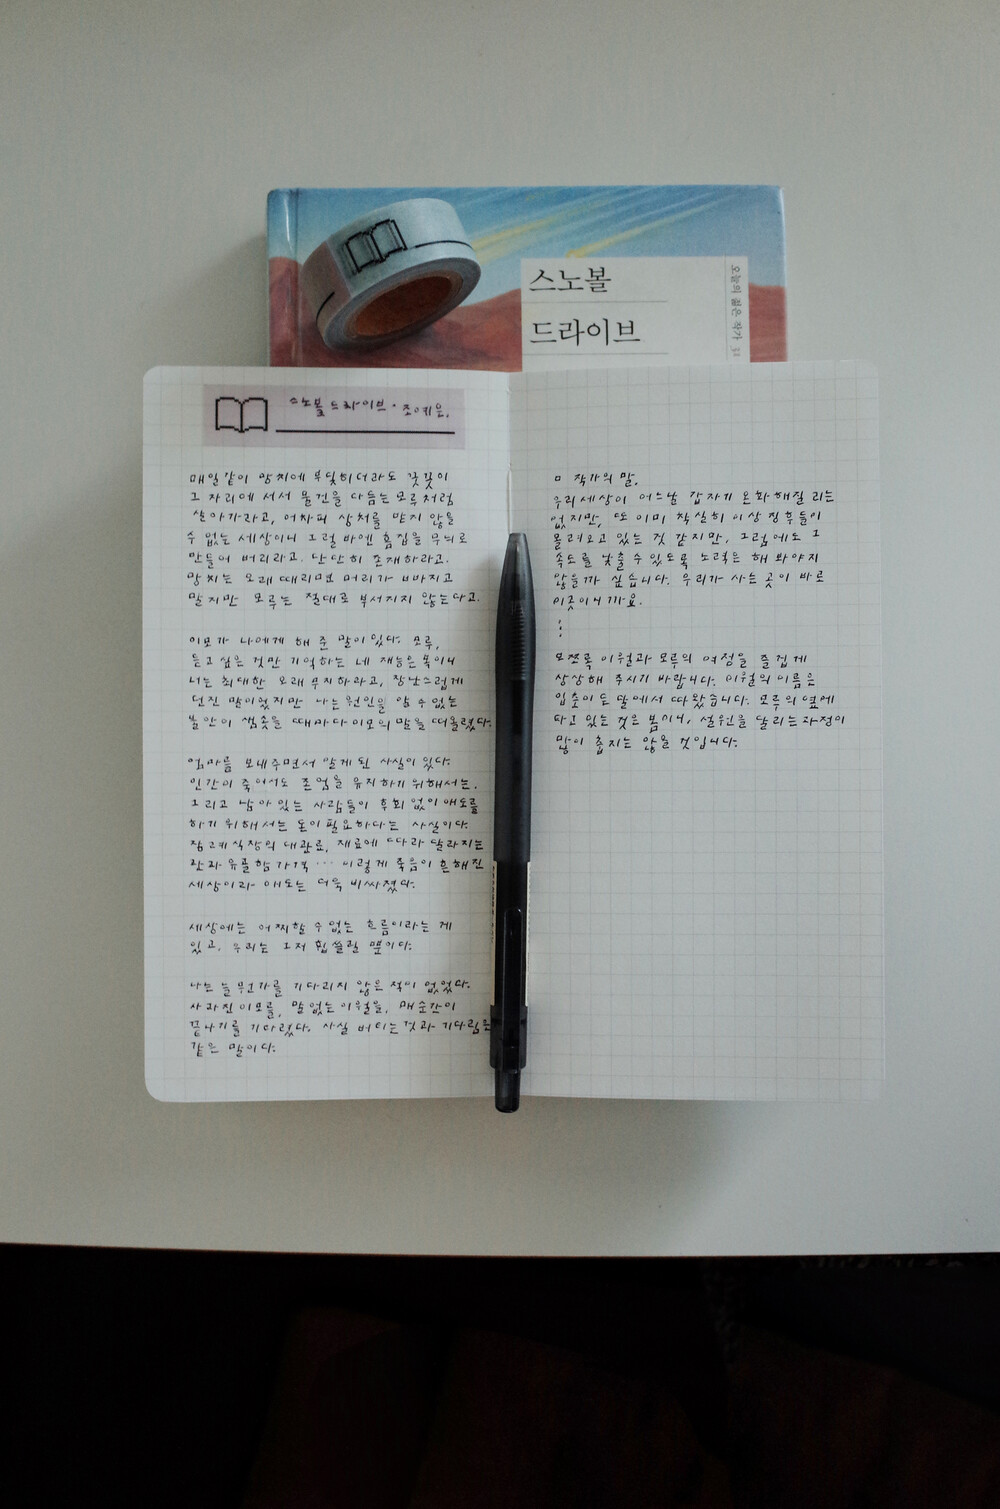 스노볼
드라이브
오늘의 젊은 작가
스노볼 드라이브 · 조예은.
매일같이 망치에 부딪히더라도 꿋꿋이
그 자리에 서서 물건을 다듬는 모루처럼
살아가라고, 어차피 상처를 받지 않을
수 없는 세상이니 그럴 바엔 흠집을 무늬로
만들어 버리라고. 단단히 존재하라고.
망치는 오래 때리면 머리가 빠지고
말지만 모루는 절대로 부서지지 않는다고.
이모가 나에게 해 준 말이 있다. 모루,
듣고 싶은 것만 기억하는 네 재능은 복이니
너는 최대한 오래 무지하라고, 장난스럽게
던진 말이었지만 나는 원인을 알 수 없는
불안이 샘솟을 때마다 이모의 말을 떠올렸다.
엄마를 보내주면서 알게 된 사실이 있다.
인간이 죽어서도 존엄을 유지하기 위해서는,
그리고 남아 있는 사람들이 후회 없이 애도를
하기 위해서는 돈이 필요하다는 사실이다.
장례식장의 대관료, 재료에 따라 달라지는
관과 유골함 가격 … 이렇게 죽음이 흔해진
세상이라 애도는 더욱 비싸졌다.
세상에는 어찌할 수 없는 흐름이라는 게
있고, 우리는 그저 휩쓸릴 뿐이다.
나는 늘 뭔가를 기다리지 않은 적이 없었다.
사라진 이모를, 말 없는 이월을, 매 순간이
끝나기를 기다렸다. 사실 버티는 것과 기다림은
같은 말이다.
ㅁ 작가의 말.
우리 세상이 어느 날 갑자기 온화해질 리는
없지만, 또 이미 착실히 이상 징후들이
몰려오고 있는 것 같지만, 그럼에도 그
속도를 낮출 수 있도록 노력은 해 봐야지
않을까 싶습니다. 우리가 사는 곳이 바로
이곳이니까요.
⋮
모쪼록 이월과 모루의 여정을 즐겁게
상상해 주시기 바랍니다. 이월의 이름은
입춘이 든 달에서 따왔습니다. 모루의 옆에
타고 있는 것은 봄이니, 설원을 달리는 과정이
많이 춥지는 않을 것입니다.